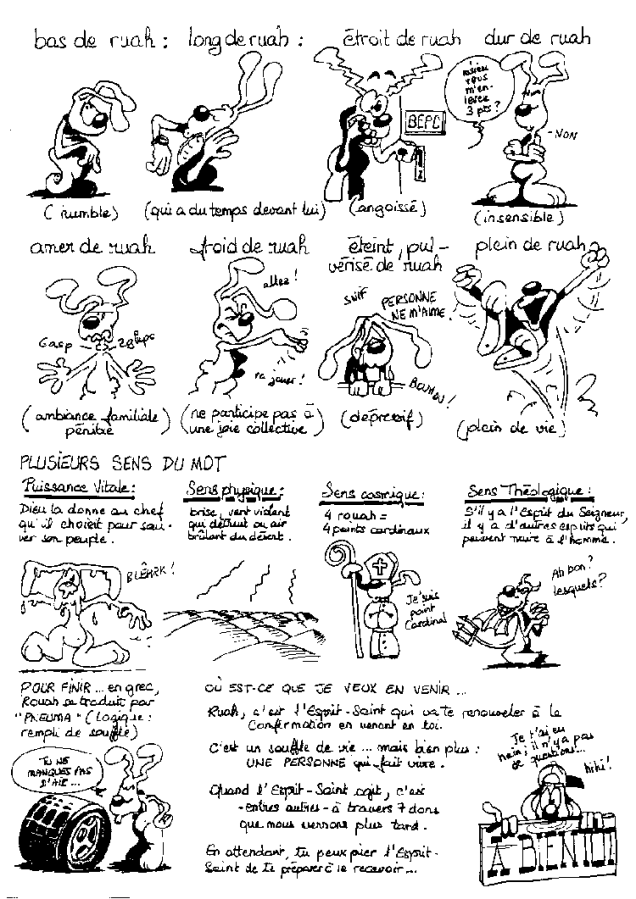 bas de ruah : long de ruah : étroit de ruah dur de ruah
m'en-
lever
3 pts ?
BEPC
- NON
(humble) (qui a du temps devant lui) (angoissé) (insensible)
amer de ruah froid de ruah éteint, pul-
vérisé de ruah
plein de ruah
allez !
Gasp
va jouer !
SNIF
PERSONNE
NE M'AIME !
BOUHOU !
(ambiance familiale
pénible)
(ne participe pas à
une joie collective)
(dépressif)
(plein de vie)
PLUSIEURS SENS DU MOT
Puissance Vitale :
Dieu la donne au chef
qu'il choisit pour sau-
ver son peuple.
Sens physique :
brise, vent violent
qui détruit ou air
brûlant du désert.
Sens cosmique :
4 rouah =
4 points cardinaux
Sens Théologique :
S'il y a l'Esprit du Seigneur,
il y a d'autres esprits qui
peuvent nuire à l'homme.
BLÊARK !
Je suis
point
Cardinal
Ah bon ?
lesquels ?
POUR FINIR ... en grec,
Rouah se traduit par
"PNEUMA" (Logique :
rempli de souffle)
TU NE
MANQUES PAS
D'AIR ...
OÙ EST-CE QUE JE VEUX EN VENIR ...
Ruah, c'est l'Esprit-Saint qui va te renouveler à la
Confirmation en venant en toi.
C'est un souffle de vie ... mais bien plus :
UNE PERSONNE qui fait vivre.
Quand l'Esprit-Saint agit, c'est
- entres autres - à travers 7 dons
que nous verrons plus tard.
En attendant, tu peux prier l'Esprit-
Saint de te préparer à le recevoir ...
Je t'ai eu
hein ; il n'y a pas
de questions ...
hihi !
A BIENTOT